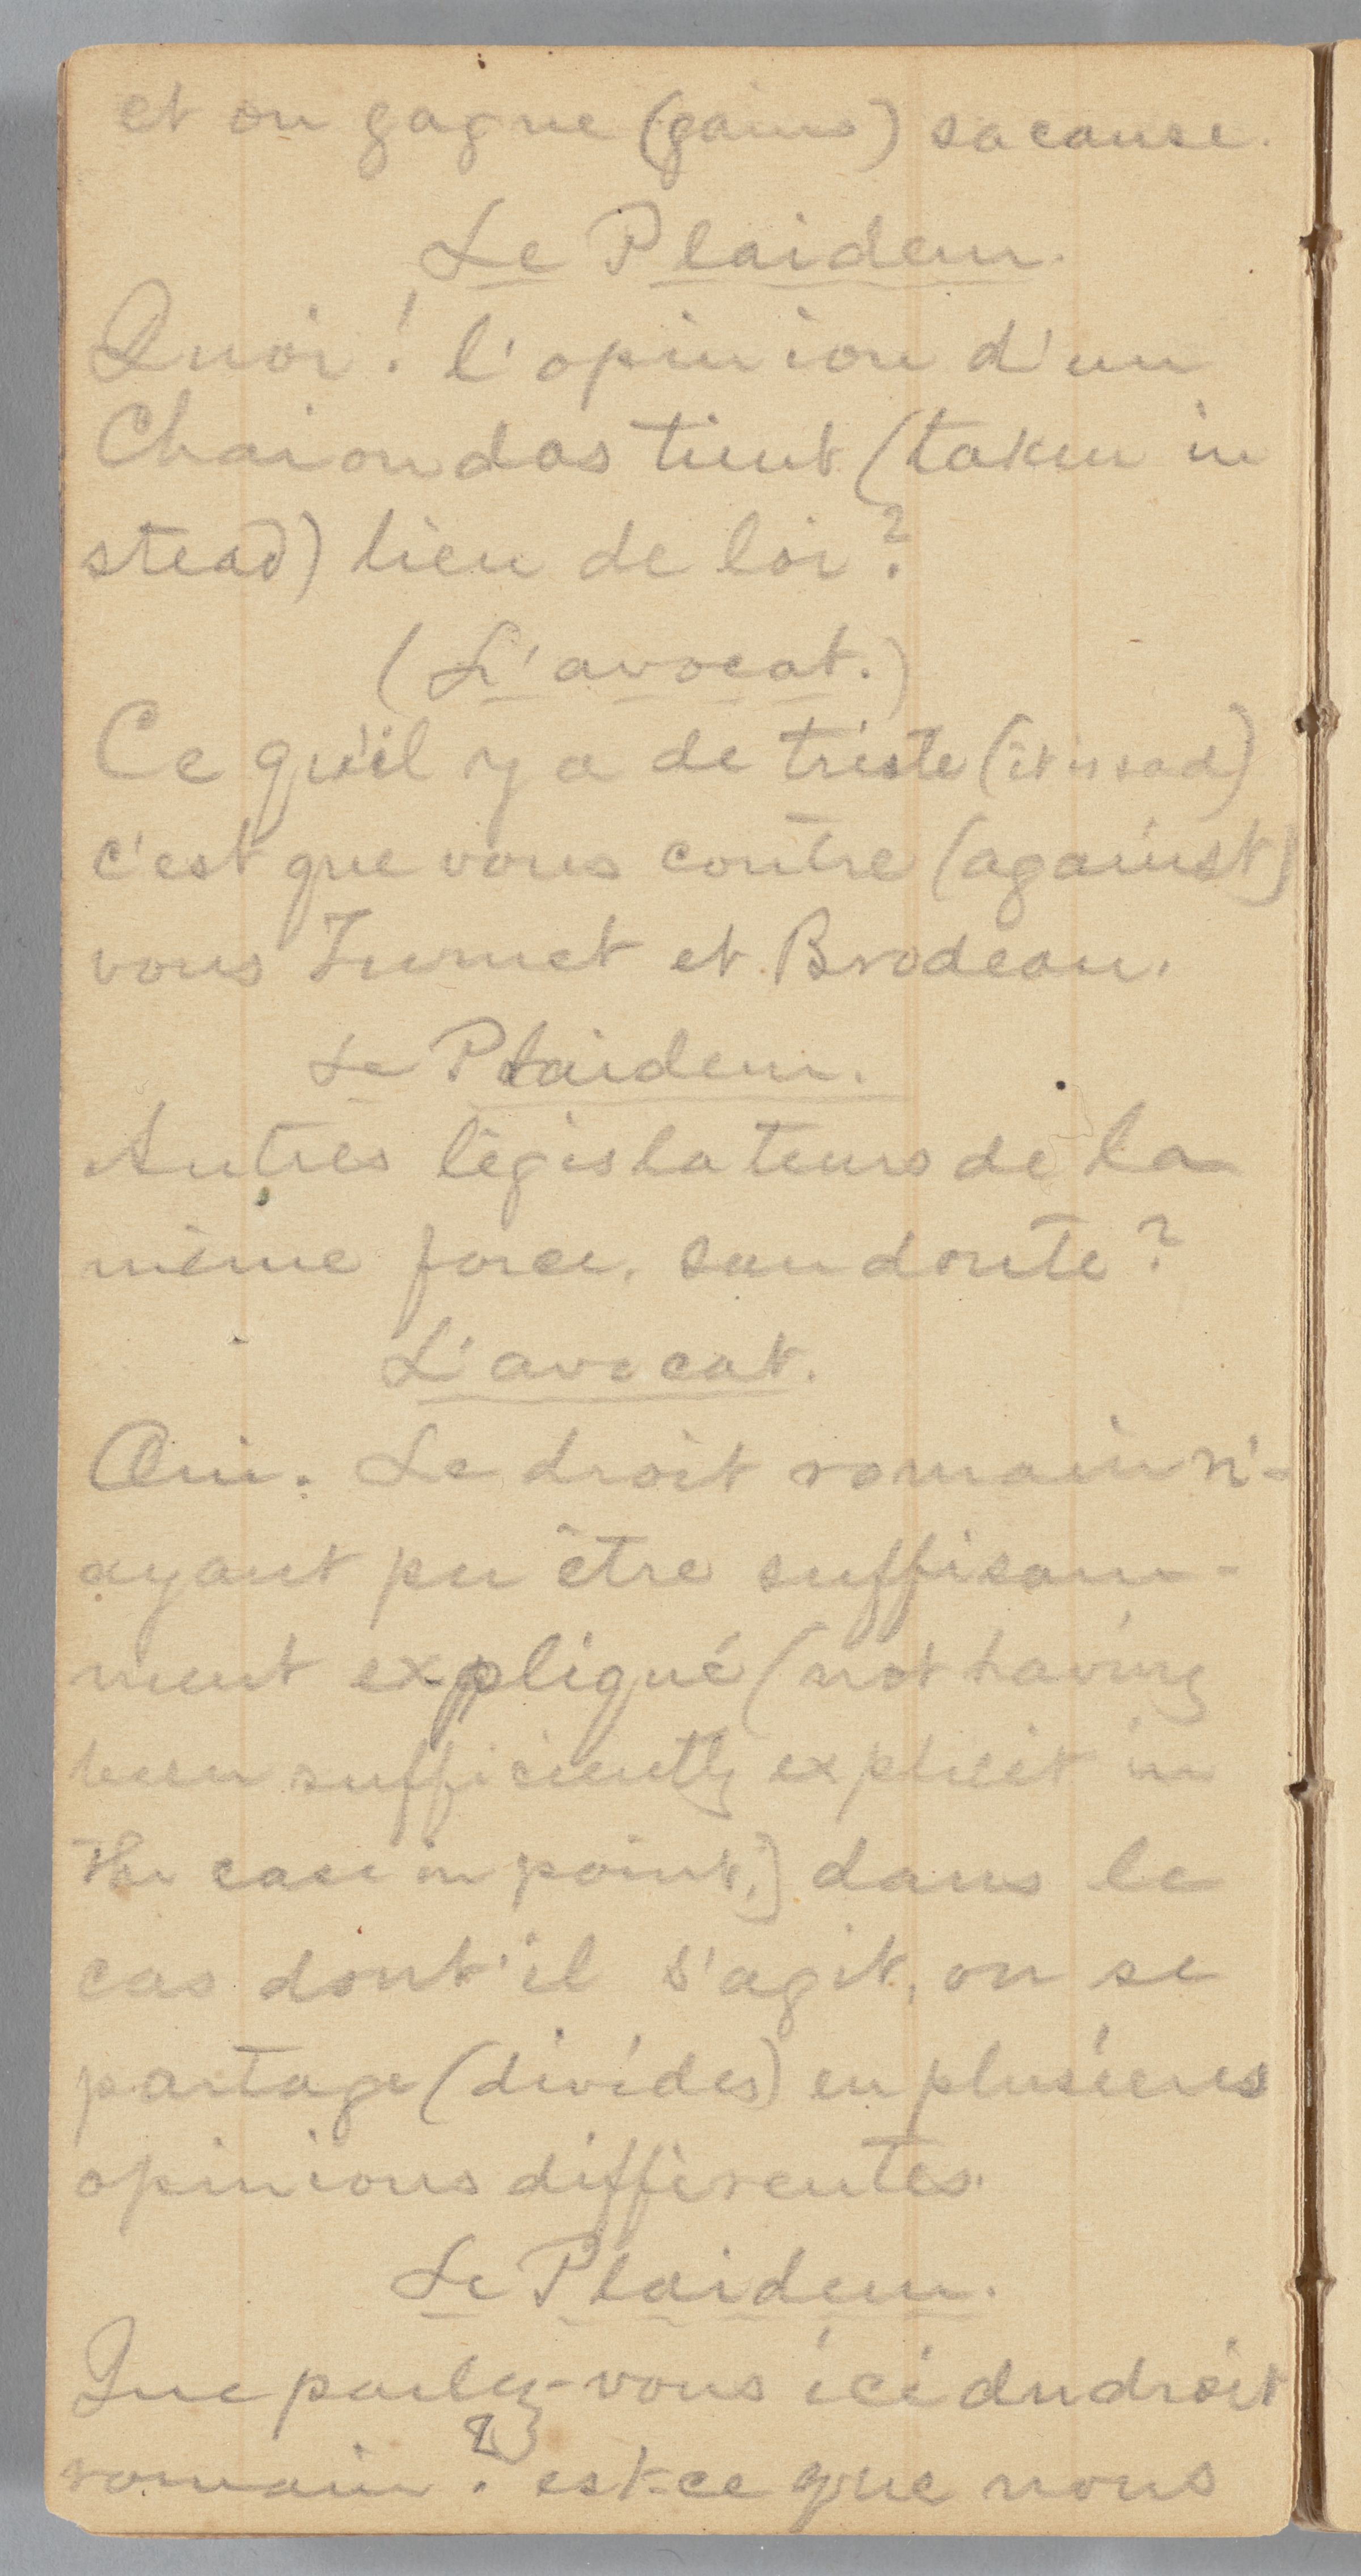 et on gagne (gains) sa cause.
Le Plaideur.
Quoi! l'opinion d'un
Chaiondas tient (taken in
stead) lieu de loi?
(L'avocat.)
Ce qu'il y a de triste (it is sad)
c'est que vous contre (against)
vous Turnet et Brodeau.
Le Plaideur.
Autres législateurs de la
même force, san doute?
L'avocat.
Oui. Le droit romain n'-
ayant pu être suffisam-
ment expliqué (not having
been sufficiently explicit in
the case in point,) dans le
cas dont il s'agit, on se
partage (divides) en plusieurs
opinions différentes.
Le Plaideur.
Que parlez-vous ici du droit
romain? est-ce que nous